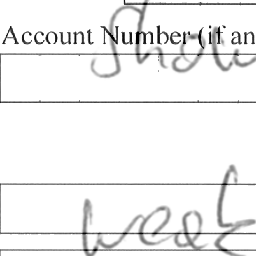 Account Number (if an
Show
weak